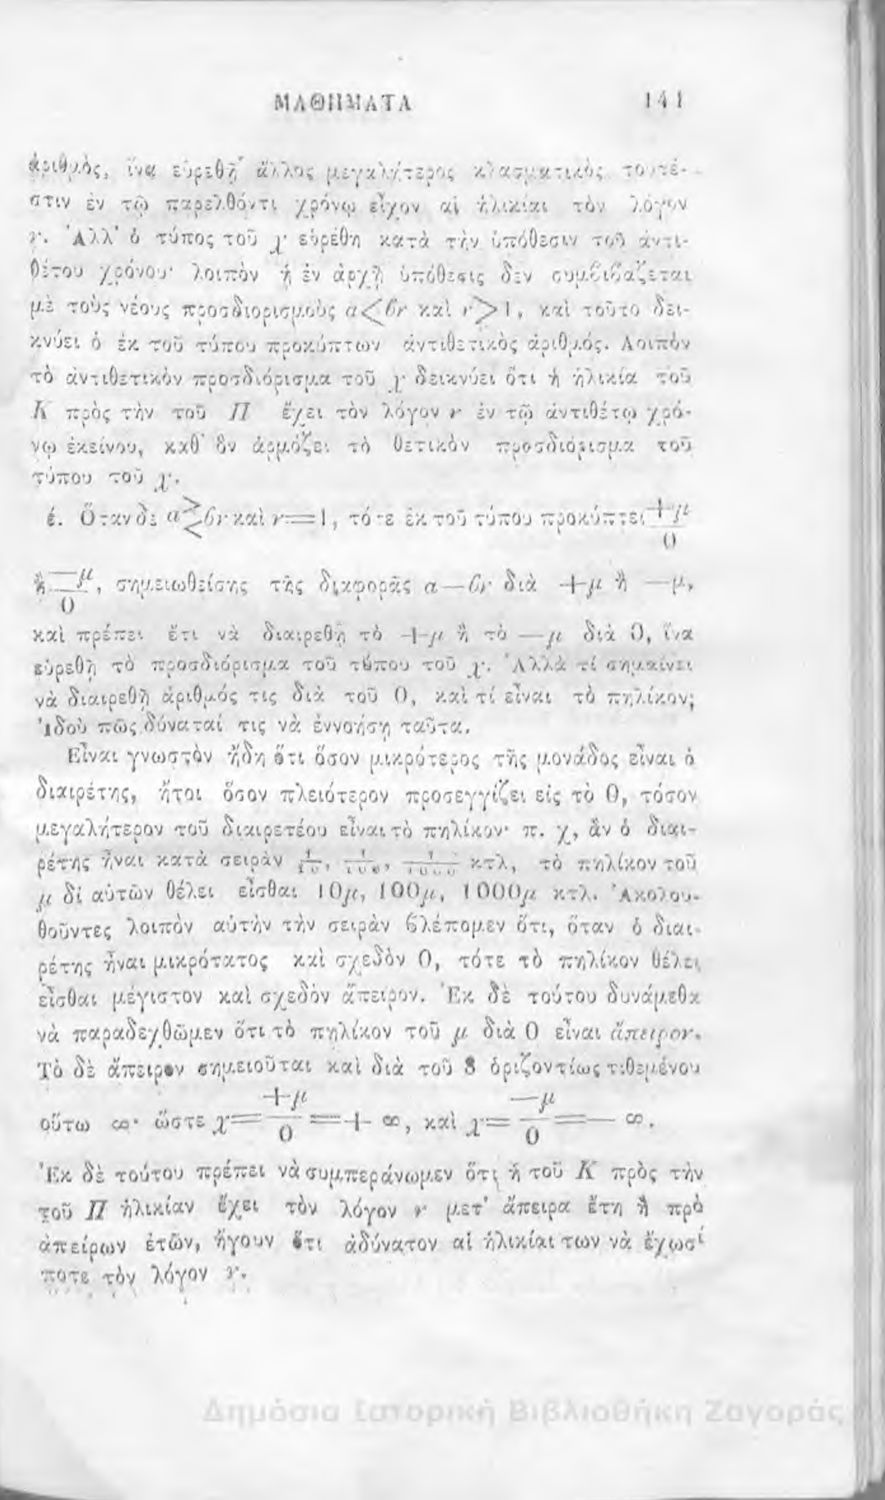 ΜΑΘΗΜΑΤΑ 141
ἀριθμὸς, ἵνα εὑρεθῇ ἄλλος μεγαλήτερος κλασματικὸς τουτέ-
στιν ἐν τῷ παρελθόντι χρόνῳ εἶχον αἱ ἡλικίαι τὸν λόγον
ν. Ἀλλ' ὁ τύπος τοῦ χ εὑρέθη κατὰ τὴν ὑπόθεσιν τοῦ ἀντι-
θέτου χρόνου· λοιπὸν ἡ ἐν ἀρχῇ ὑπόθεσις δὲν συμβιβάζεται
μὲ τοὺς νέους προσδιορισμοὺς α<βν καὶ ν>1, καὶ τοῦτο δει-
κνύει ὁ ἐκ τοῦ τύπου προκύπτων ἀντιθετικὸς ἀριθμός. Λοιπὸν
τὸ ἀντιθετικὸν προσδιόρισμα τοῦ χ δεικνύει ὅτι ἡ ἡλικία τοῦ
Κ πρὸς τὴν τοῦ Π ἔχει τὸν λόγον ν ἐν τῷ ἀντιθέτῳ χρό-
νῳ ἐκείνου, καθ' ὃν ἁρμόζει τὸ θετικὸν προσδιόρισμα τοῦ
τύπου τοῦ χ.
έ. Ὅταν δὲ α≷βν καὶ ν=1, τότε ἐκ τοῦ τύπου προκύπτει +μ/0
ἢ —μ/0, σημειωθείσης τῆς διαφορᾶς α—βν διὰ +μ ἢ —μ,
καὶ πρέπει ἔτι νὰ διαιρεθῇ τὸ +μ ἢ τὸ —μ διὰ 0, ἵνα
εὑρεθῇ τὸ προσδιόρισμα τοῦ τύπου τοῦ χ. Ἀλλὰ τί σημαίνει
νὰ διαιρεθῇ ἀριθμός τις διὰ τοῦ 0, καὶ τί εἶναι τὸ πηλίκον;
Ἰδοὺ πῶς δύναταί τις νὰ ἐννοήσῃ ταῦτα.
Εἶναι γνωστὸν ἤδη ὅτι ὅσον μικρότερος τῆς μονάδος εἶναι ὁ
διαιρέτης, ἤτοι ὅσον πλειότερον προσεγγίζει εἰς τὸ 0, τόσον
μεγαλήτερον τοῦ διαιρετέου εἶναι τὸ πηλίκον· π. χ, ἂν ὁ διαι-
ρέτης ἦναι κατὰ σειρὰν 1/10, 1/100, 1/1000 κτλ, τὸ πηλίκον τοῦ
μ δἰ αὐτῶν θέλει εἶσθαι 10μ, 100μ, 1000μ κτλ. Ἀκολου-
θοῦντες λοιπὸν αὐτὴν τὴν σειρὰν βλέπομεν ὅτι, ὅταν ὁ διαι-
ρέτης ἦναι μικρότατος καὶ σχεδὸν 0, τότε τὸ πηλίκον θέλει
εἶσθαι μέγιστον καὶ σχεδὸν ἄπειρον. Ἐκ δὲ τούτου δυνάμεθα
νὰ παραδεχθῶμεν ὅτι τὸ πηλίκον τοῦ μ διὰ 0 εἶναι ἄπειρον.
Τὸ δὲ ἄπειρον σημειοῦται καὶ διὰ τοῦ 8 ὁριζοντίως τιθεμένου
οὕτω ∞· ὥστε χ= +μ/0 =+ ∞, καὶ χ= —μ/0 =— ∞.
Ἐκ δὲ τούτου πρέπει νὰ συμπεράνωμεν ὅτι ἡ τοῦ Κ πρὸς τὴν
τοῦ Π ἡλικίαν ἔχει τὸν λόγον ν μετ' ἄπειρα ἔτη ἢ πρὸ
ἀπείρων ἐτῶν, ἤγουν ὅτι ἀδύνατον αἱ ἡλικίαι των νὰ ἔχωσί
ποτε τὸν λόγον ν.
Δημόσια Ιστορική Βιβλιοθήκη Ζαγοράς